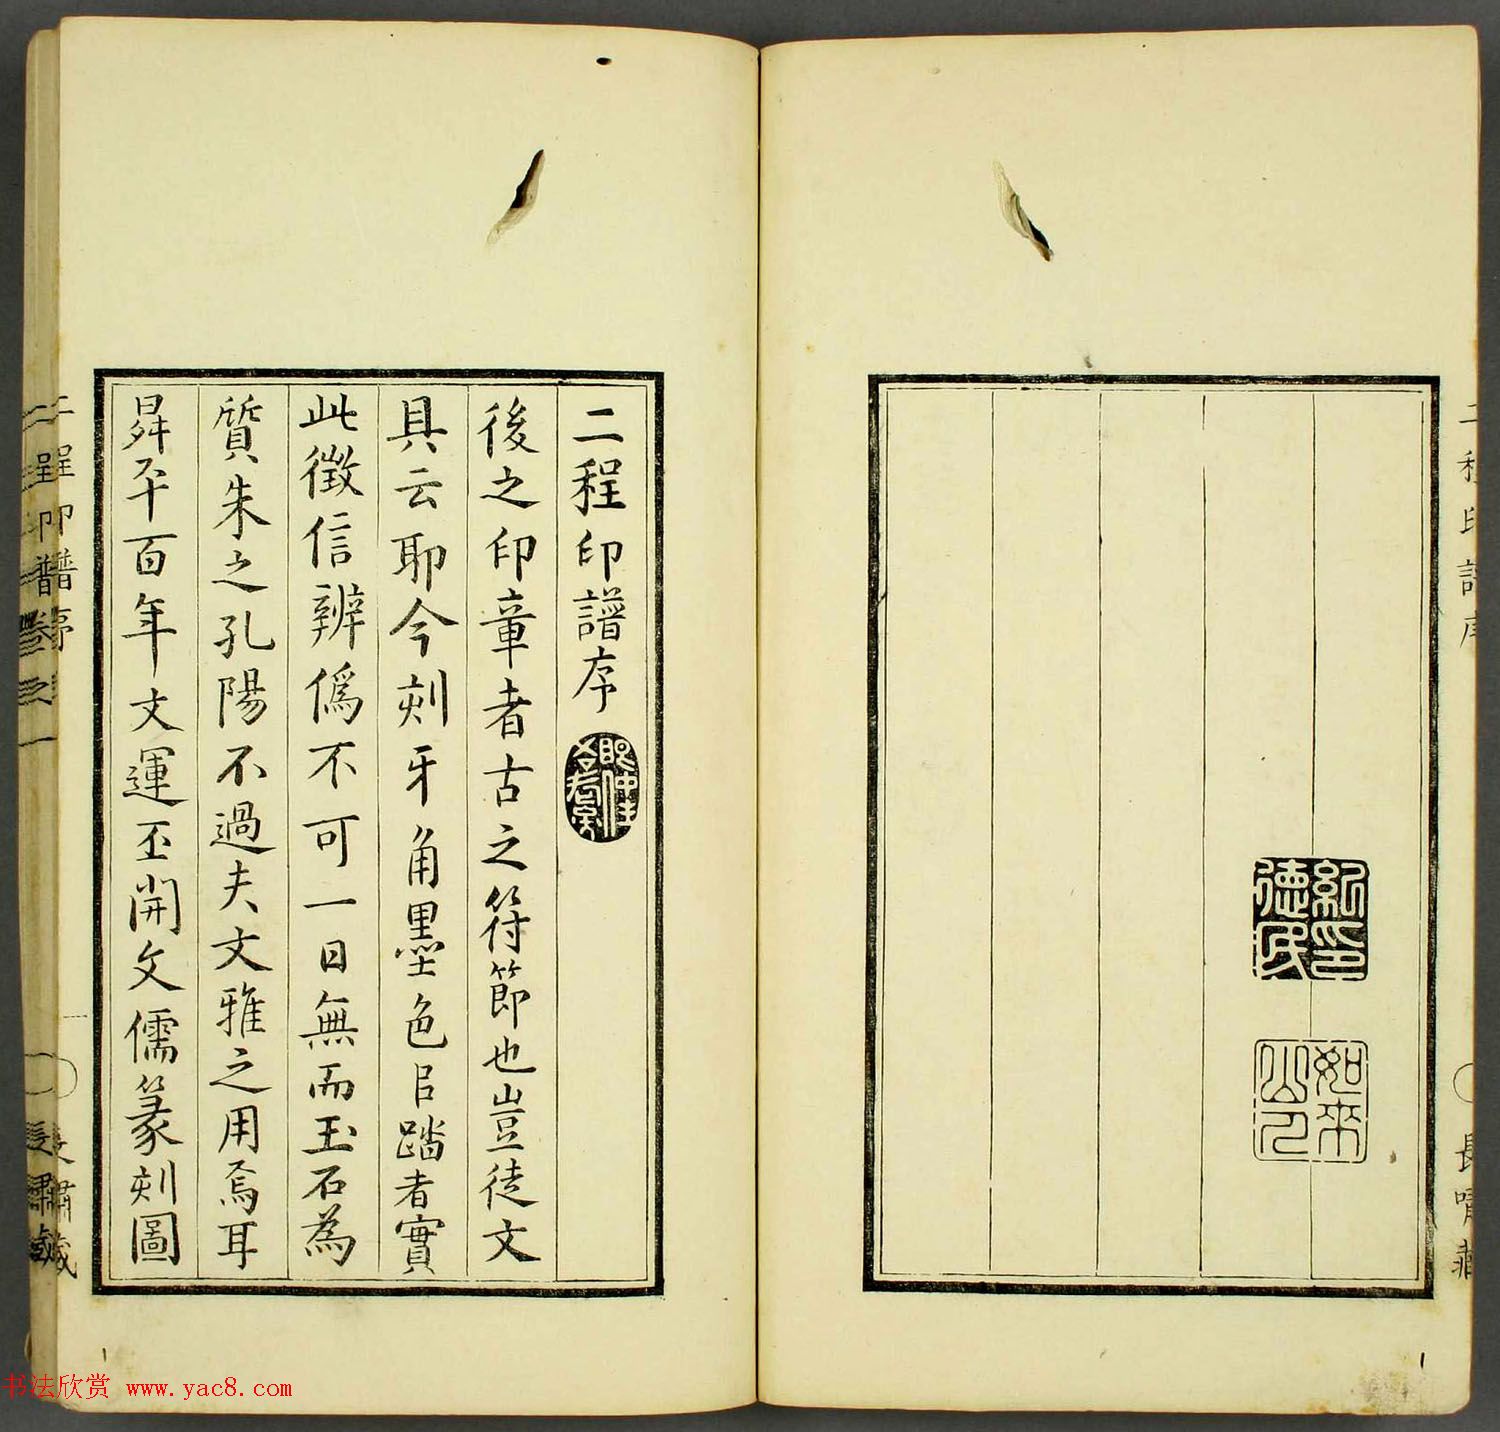 紀印德民
如來山人
二程印譜序
長嘯藏
二程印譜序
後之印章者古之符節也豈徒文
具云耶今刻牙角墨色㠯踏者實
此徵信辨僞不可一日無而玉石為
質朱之孔陽不過夫文雅之用焉耳
昇平百年文運丕開文儒篆刻圖
二程印譜卷之一
書法欣赏 www.yac8.com